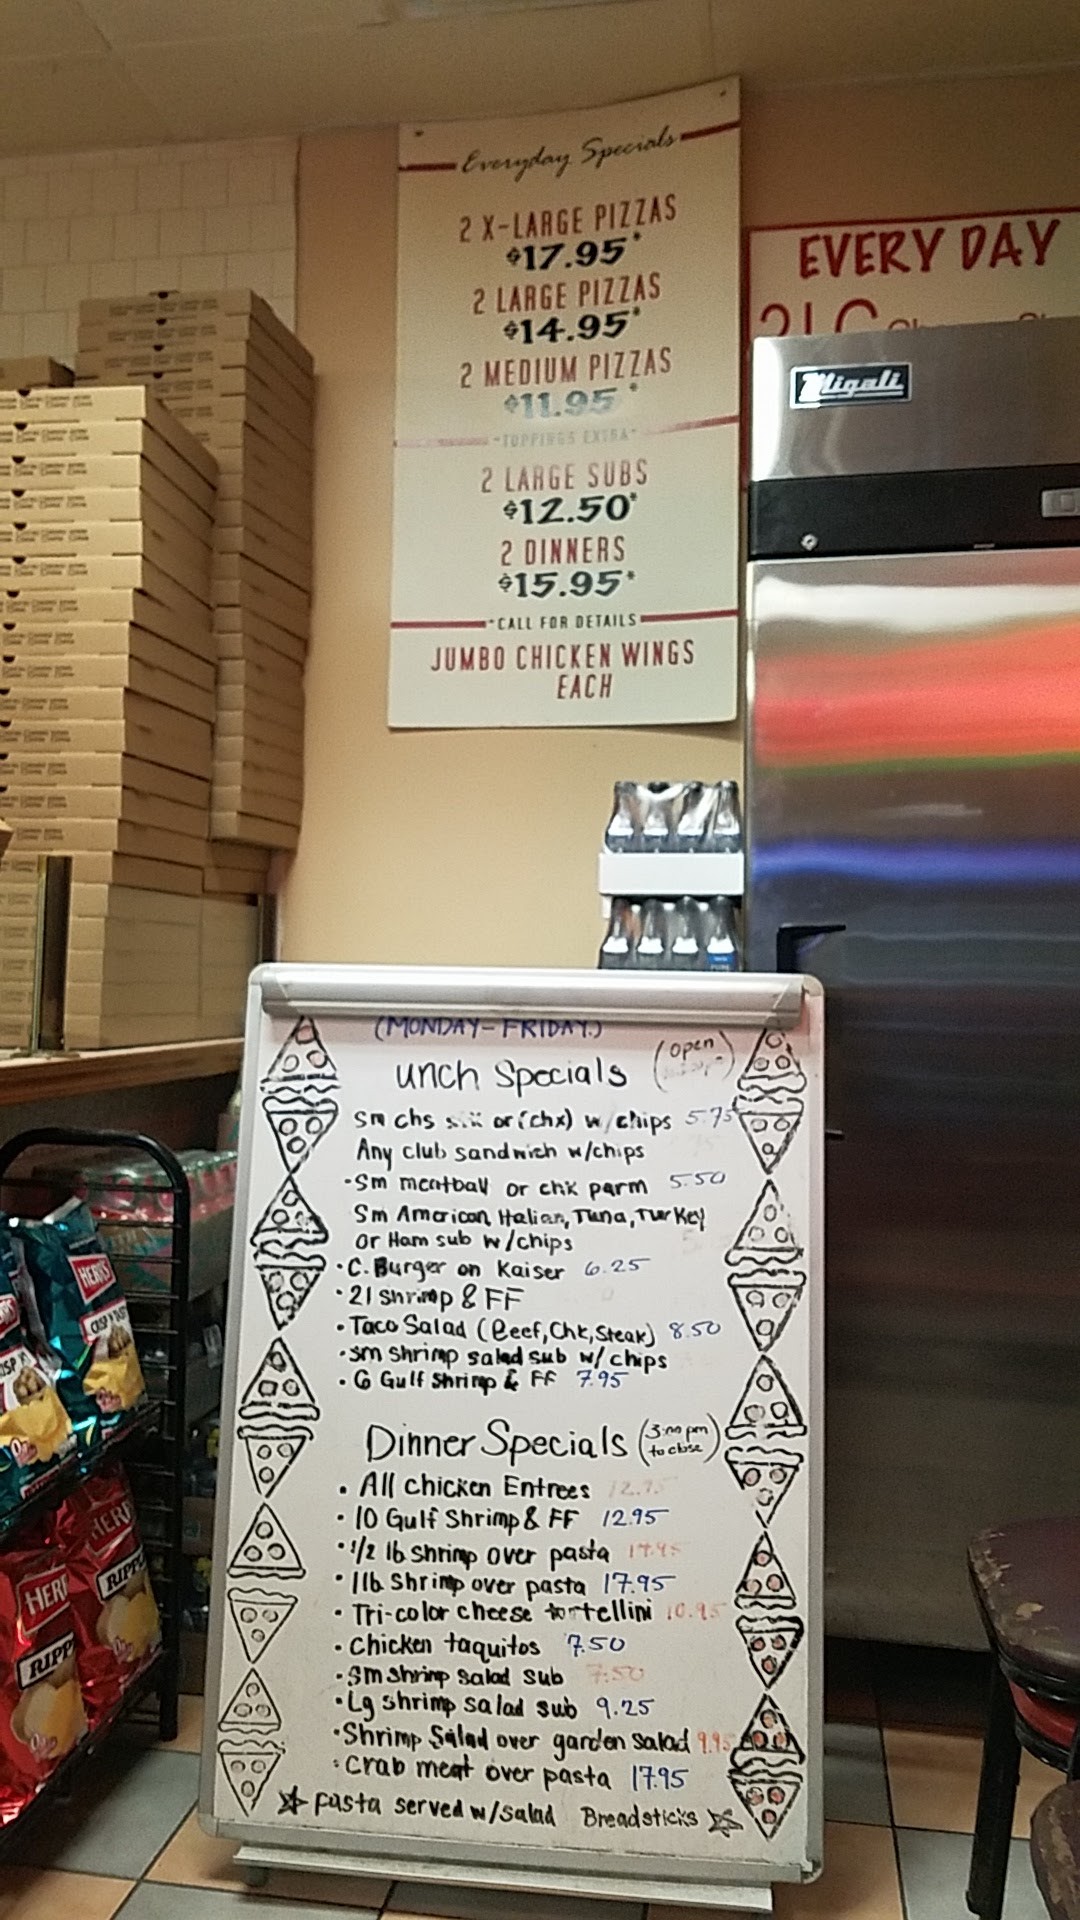 Everyday Specials
2 X-LARGE PIZZAS
$17.95*
2 LARGE PIZZAS
$14.95*
2 MEDIUM PIZZAS
$11.95*
*TOPPINGS EXTRA*
2 LARGE SUBS
$12.50*
2 DINNERS
$15.95*
*CALL FOR DETAILS
JUMBO CHICKEN WINGS
EACH
EVERY DAY
2 LG
Migali
(MONDAY-FRIDAY)
unch Specials (open
Sm chs or (chx) w/chips 5.75
Any club sandwich w/chips
-Sm meatball or chk parm 5.50
Sm American, Italian, Tuna, Turkey
or Ham sub w/chips
·C. Burger on Kaiser 6.25
·21 shrimp & FF
·Taco Salad (Beef, Chk, Steak) 8.50
·sm shrimp salad sub w/ chips
·6 Gulf Shrimp & FF 7.95
Dinner Specials (3:00 pm
to close)
·All Chicken Entrees 12.95
·10 Gulf Shrimp & FF 12.95
·1/2 lb shrimp over pasta 14.95
·1lb Shrimp over pasta 17.95
·Tri-color cheese tortellini 10.95
·Chicken taquitos 7.50
·Sm shrimp salad sub 7.50
·Lg shrimp salad sub 9.25
·Shrimp Salad over garden salad 9.95
·Crab meat over pasta 17.95
☆ pasta served w/salad Breadsticks ☆
HERR'S
CRISP 'N TASTY
HERR
RIPP
HERR
RIPP